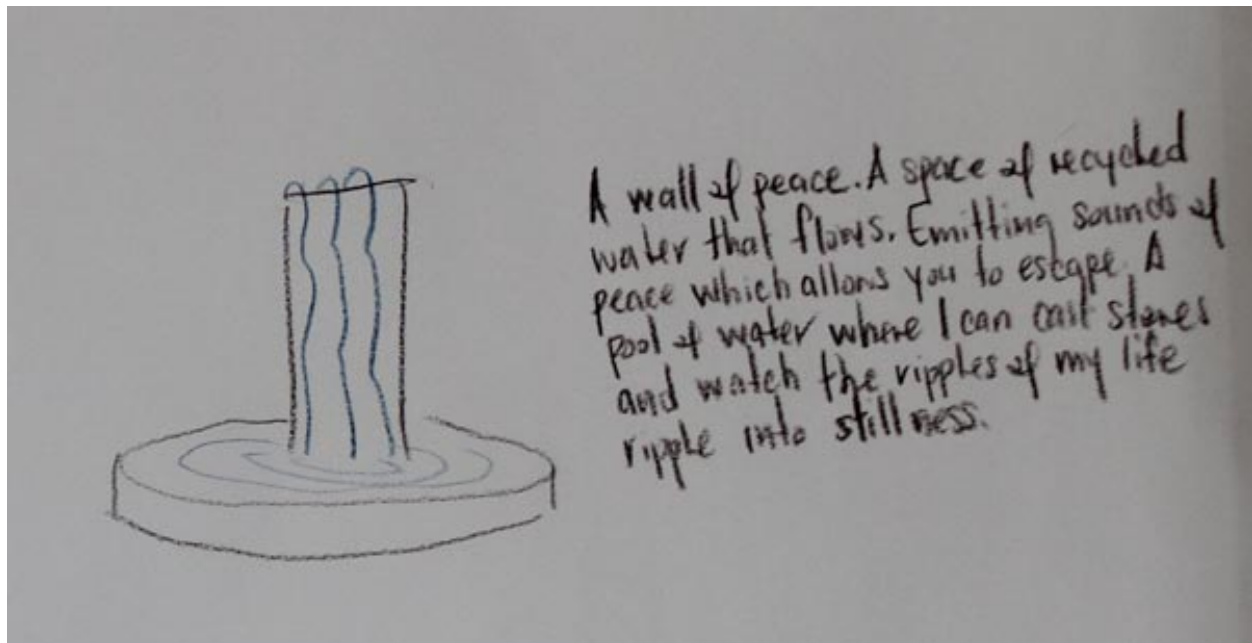 A wall of peace. A space of recycled
water that flows. Emitting sounds of
peace which allows you to escape. A
pool of water where I can cast stones
and watch the ripples of my life
ripple into stillness.